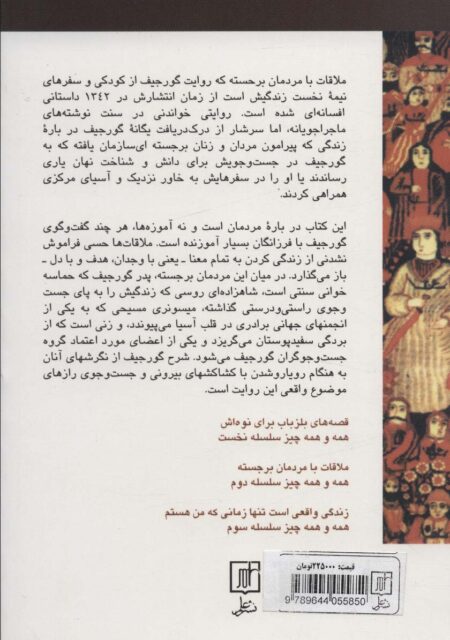 ملاقات با مردمان برجسته که روایت گورجیف از کودکی و سفرهای
نیمهٔ نخست زندگیش است از زمان انتشارش در ۱۳۴۲ داستانی
افسانه‌ای شده است. روایتی خواندنی در سنت نوشته‌های
ماجراجویانه، اما سرشار از درک‌دریافت یگانهٔ گورجیف در بارهٔ
زندگی که پیرامون مردان و زنان برجسته ای‌سازمان یافته که به
گورجیف در جست‌وجویش برای دانش و شناخت نهان یاری
رساندند یا او را در سفرهایش به خاور نزدیک و آسیای مرکزی
همراهی کردند.
این کتاب در بارهٔ مردمان است و نه آموزه‌ها، هر چند گفت‌وگوی
گورجیف با فرزانگان بسیار آموزنده است. ملاقات‌ها حسی فراموش
نشدنی از زندگی کردن به تمام معنا ـ یعنی با وجدان، هدف و با دل ـ
باز می‌گذارد. در میان این مردمان برجسته، پدر گورجیف که حماسه
خوانی سنتی است، شاهزاده‌ای روسی که زندگیش را به پای جست
وجوی راستی‌ودرستی گذاشته، میسونری مسیحی که به یکی از
انجمنهای جهانی برادری در قلب آسیا می‌پیوندد، و زنی است که از
بردگی سفیدپوستان می‌گریزد و یکی از اعضای مورد اعتماد گروه
جست‌وجوگران گورجیف می‌شود. شرح گورجیف از نگرشهای آنان
به هنگام رویاروشدن با کشاکشهای بیرونی و جست‌وجوی رازهای
موضوع واقعی این روایت است.
قصه‌های بلزباب برای نوه‌اش
همه و همه چیز سلسله نخست
ملاقات با مردمان برجسته
همه و همه چیز سلسله دوم
زندگی واقعی است تنها زمانی که من هستم
همه و همه چیز سلسله سوم
قیمت: ۲۲۵۰۰۰تومان
9 789644 055850